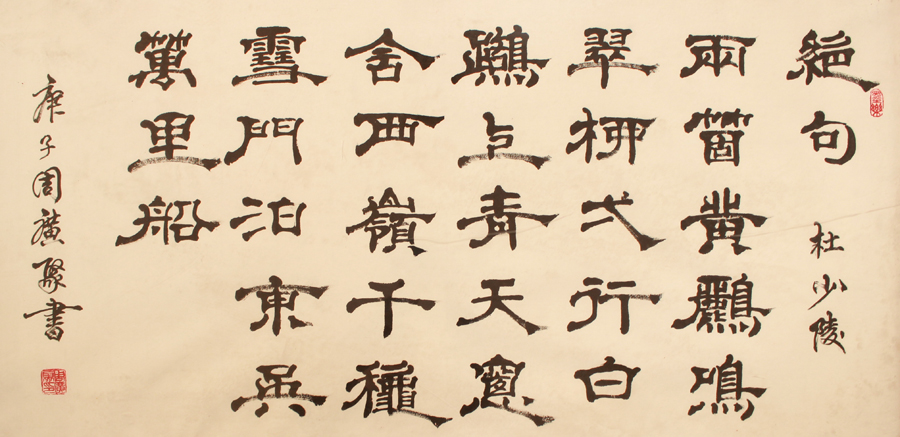 絕句 杜少陵
兩箇黃鸝鳴
翠柳弌行白
鷺上青天窻
含西嶺千穐
雪門泊東吳
萬里船
庚子周廣聚書